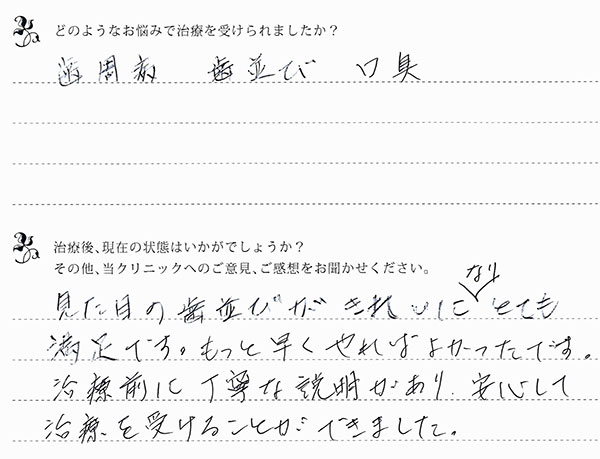 どのようなお悩みで治療を受けられましたか？
歯周病 歯並び 口臭
治療後、現在の状態はいかがでしょうか？
その他、当クリニックへのご意見、ご感想をお聞かせください。
見た目の歯並びがきれいになりとても
満足です。もっと早くやればよかったです。
治療前に丁寧な説明があり、安心して
治療を受けることができました。